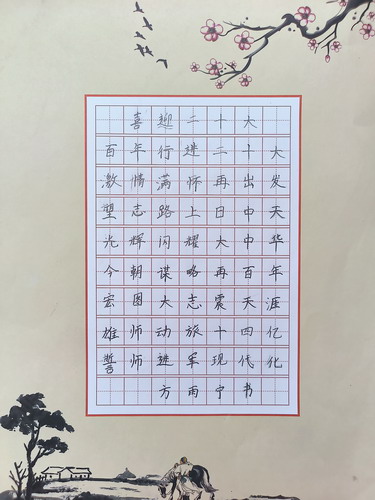 喜迎二十大
百年行进二十大
激情满怀再出发
壮志路上日中天
光辉闪耀大中华
今朝谋略再百年
宏图大志震天涯
雄师动旅十四亿
誓师进军现代化
方雨宁书